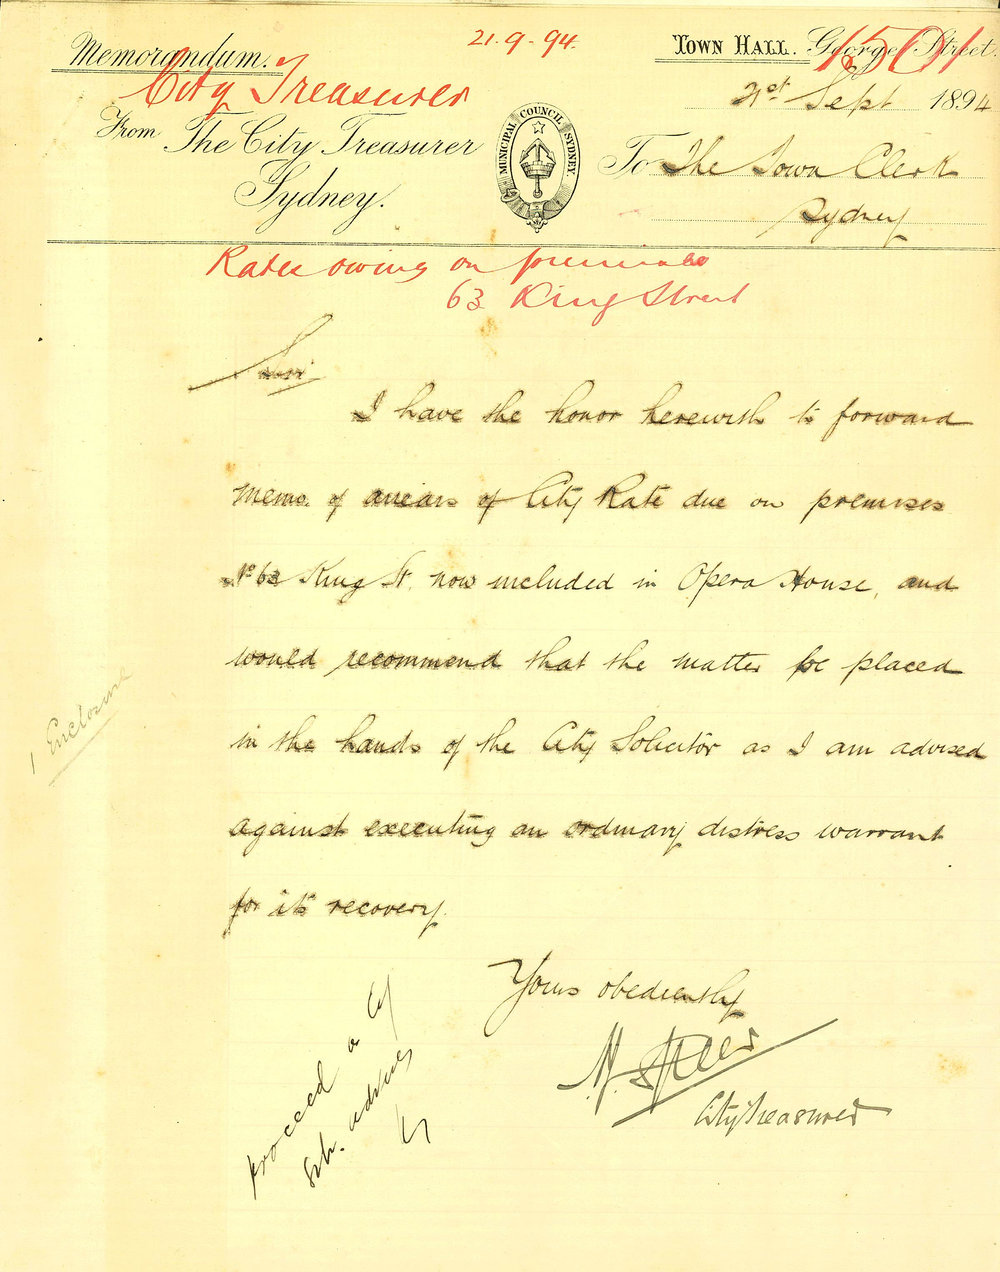 Memorandum.
21.9.94.
TOWN HALL. George Street.
1501
City Treasurer
21st Sept 1894
From The City Treasurer
Sydney.
MUNICIPAL COUNCIL SYDNEY.
To The Town Clerk
Sydney
Rates owing on premises
63 King Street
Sir
I have the honor herewith to forward
memo. of arrears of City Rate due on premises
No 63 King St. now included in Opera House, and
would recommend that the matter be placed
in the hands of the City Solicitor as I am advised
against executing an ordinary distress warrant
for its recovery.
1 Enclosure
Yours obediently
City Treasurer
proceed as City
Sol. advises